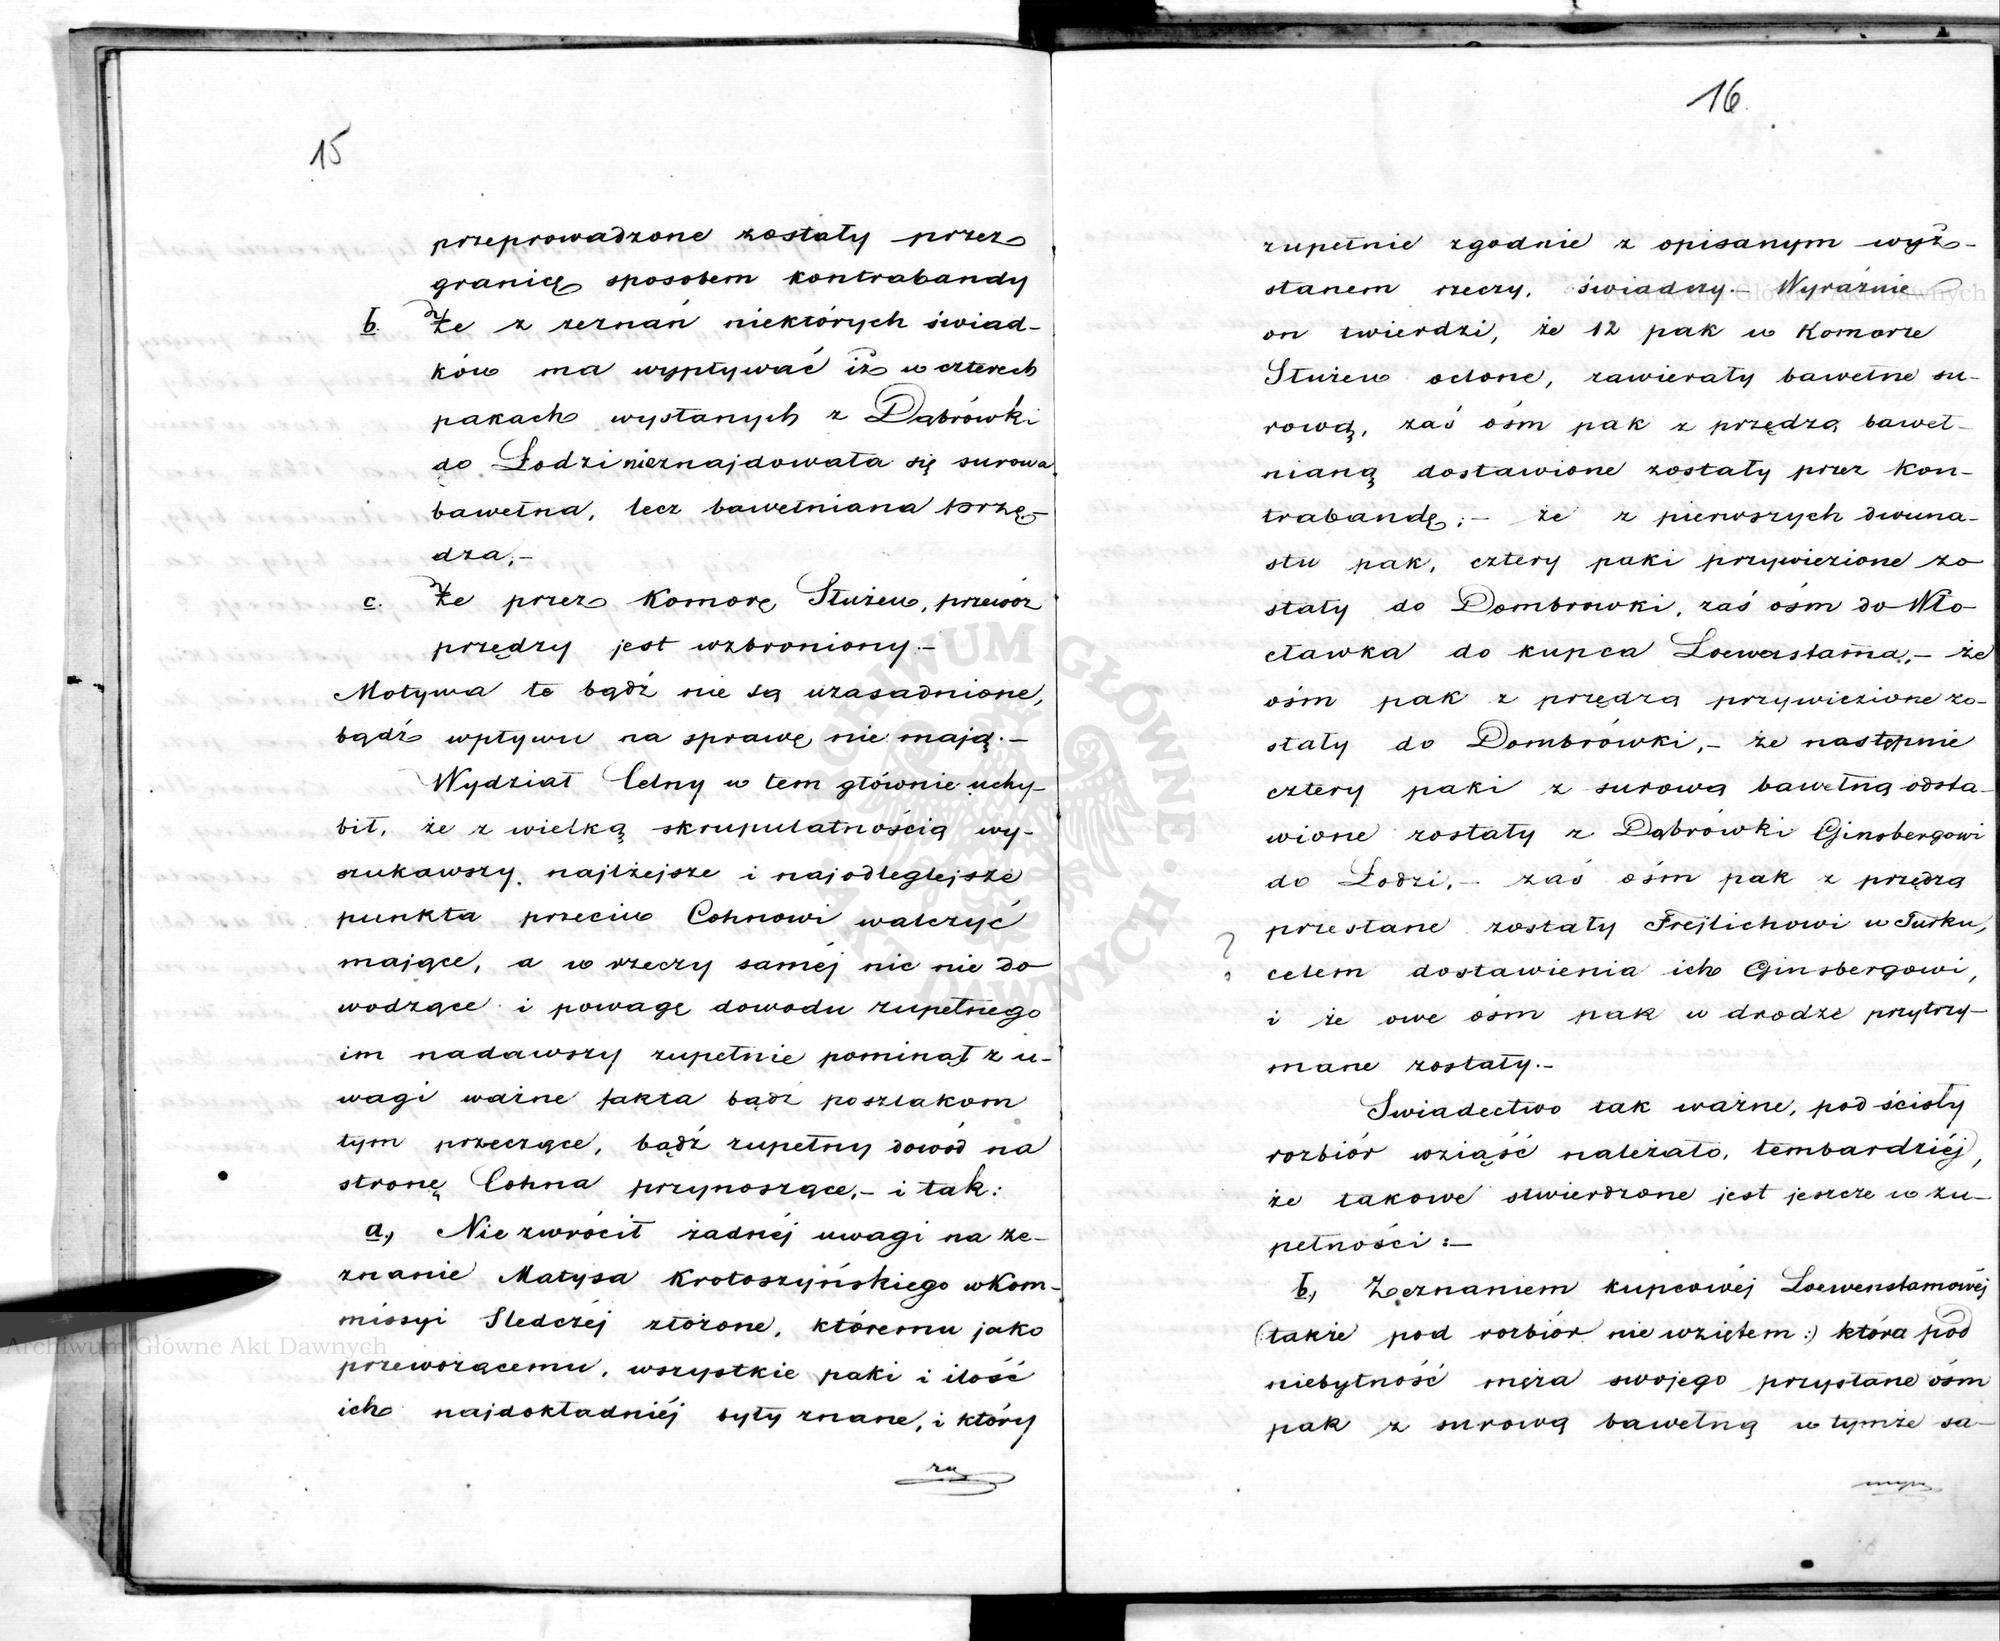 15
przeprowadzone zostały przez
granicę sposobem kontrabandy
b. Że z zeznań niektórych świad-
ków ma wypływać iż w czterech
pakach wysłanych z Dąbrówki
do Łodzi nieznajdowała się surowa
bawełna, lecz bawełniana przę-
dza,-
c. Że przez Komorę Służew, przewóz
przędzy jest wzbroniony.-
Motywa te bądź nie są uzasadnione,
bądź wpływu na sprawę nie mają.-
Wydział Celny w tem głównie uchy-
bił, że z wielką skrupulatnością wy-
szukawszy, najlżejsze i najodleglejsze
punkta przeciw Cohnowi walczyć
mające, a w rzeczy saméj nic nie do
wodzące i powagę dowodu zupełnego
im nadawszy zupełnie pominął z u-
wagi ważne fakta bądź poszlakom
tym przeczące, bądź zupełny dowód na
stronę Cohna przynoszące,- i tak:
a., Nie zwrócił żadnéj uwagi na ze-
znanie Matysa Krotoszyńskiego w Kom-
missyi Sledczéj złożone, któremu jako
przewożącemu, wszystkie paki i ilość
ich najdokładniéj były znane, i który
zu
16
zupełnie zgodnie z opisanym wyż-
stanem rzeczy, świadczy. Wyraźnie
on twierdzi, że 12 pak w Komorze
Służew oclone, zawierały bawełnę su-
rową, zaś ośm pak z przędzą baweł-
nianą dostawione zostały przez kon-
trabandę;- że z pierwszych dwuna-
stu pak, cztery paki przywiezione zo
stały do Dombrowki, zaś ośm do Wło
cławka do kupca Loewenstama,- że
ośm pak z przędzą przywiezione zo-
stały do Dombrówki,- że następnie
cztery paki z surową bawełną odsta-
wione zostały z Dąbrówki Ginsbergowi
do Łodzi,- zaś ośm pak z przędzą
przesłane zostały Frejlichowi w Turku,
? celem dostawienia ich Ginsbergowi,
i że owe ośm pak w drodze przytrzy-
mane zostały.-
Swiadectwo tak ważne, pod ścisły
rozbiór wziąść należało, tembardziéj,
że takowe stwierdzone jest jeszcze w zu-
pełności:-
b, Zeznaniem kupcowéj Loewenstamowéj
(:także pod rozbiór nie wziętem:) która pod
niebytność męża swojego przysłane ośm
pak z surową bawełną w tymże sa-